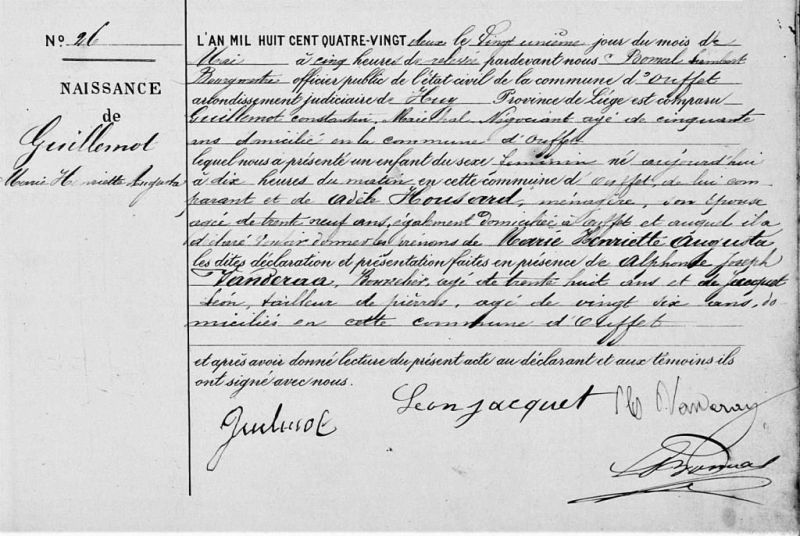 N° 26
NAISSANCE
de
Guillemot
Marie Henriette Augusta
L'AN MIL HUIT CENT QUATRE-VINGT deux le Vingt unième jour du mois de
Mai à cinq heures de relevée pardevant nous Bomal Lambert
Bourgmestre officier public de l'état civil de la commune d'Ouffet
arrondissement judiciaire de Huy Province de Liége est comparu
Guillemot Constantin, Maréchal, Négociant agé de cinquante
ans domicilié en la commune d'Ouffet
lequel nous a présenté un enfant du sexe féminin né aujourd'hui
à dix heures du matin en cette commune d'Ouffet, de lui com
parant et de Adèle Housard, ménagère, son épouse
agée de trente neuf ans, également domiciliée à Ouffet et auquel il a
déclaré vouloir donner les prénoms de Marie Henriette Augusta
les dites déclaration et présentation faites en présence de Alphonse Joseph
Vanderaa, agé de trente huit ans et de Jacquet
Léon, tailleur de pierres, agé de vingt six ans, do
miciliés en cette commune d'Ouffet
et après avoir donné lecture du présent acte au déclarant et aux témoins ils
ont signé avec nous.
Leon Jacquet